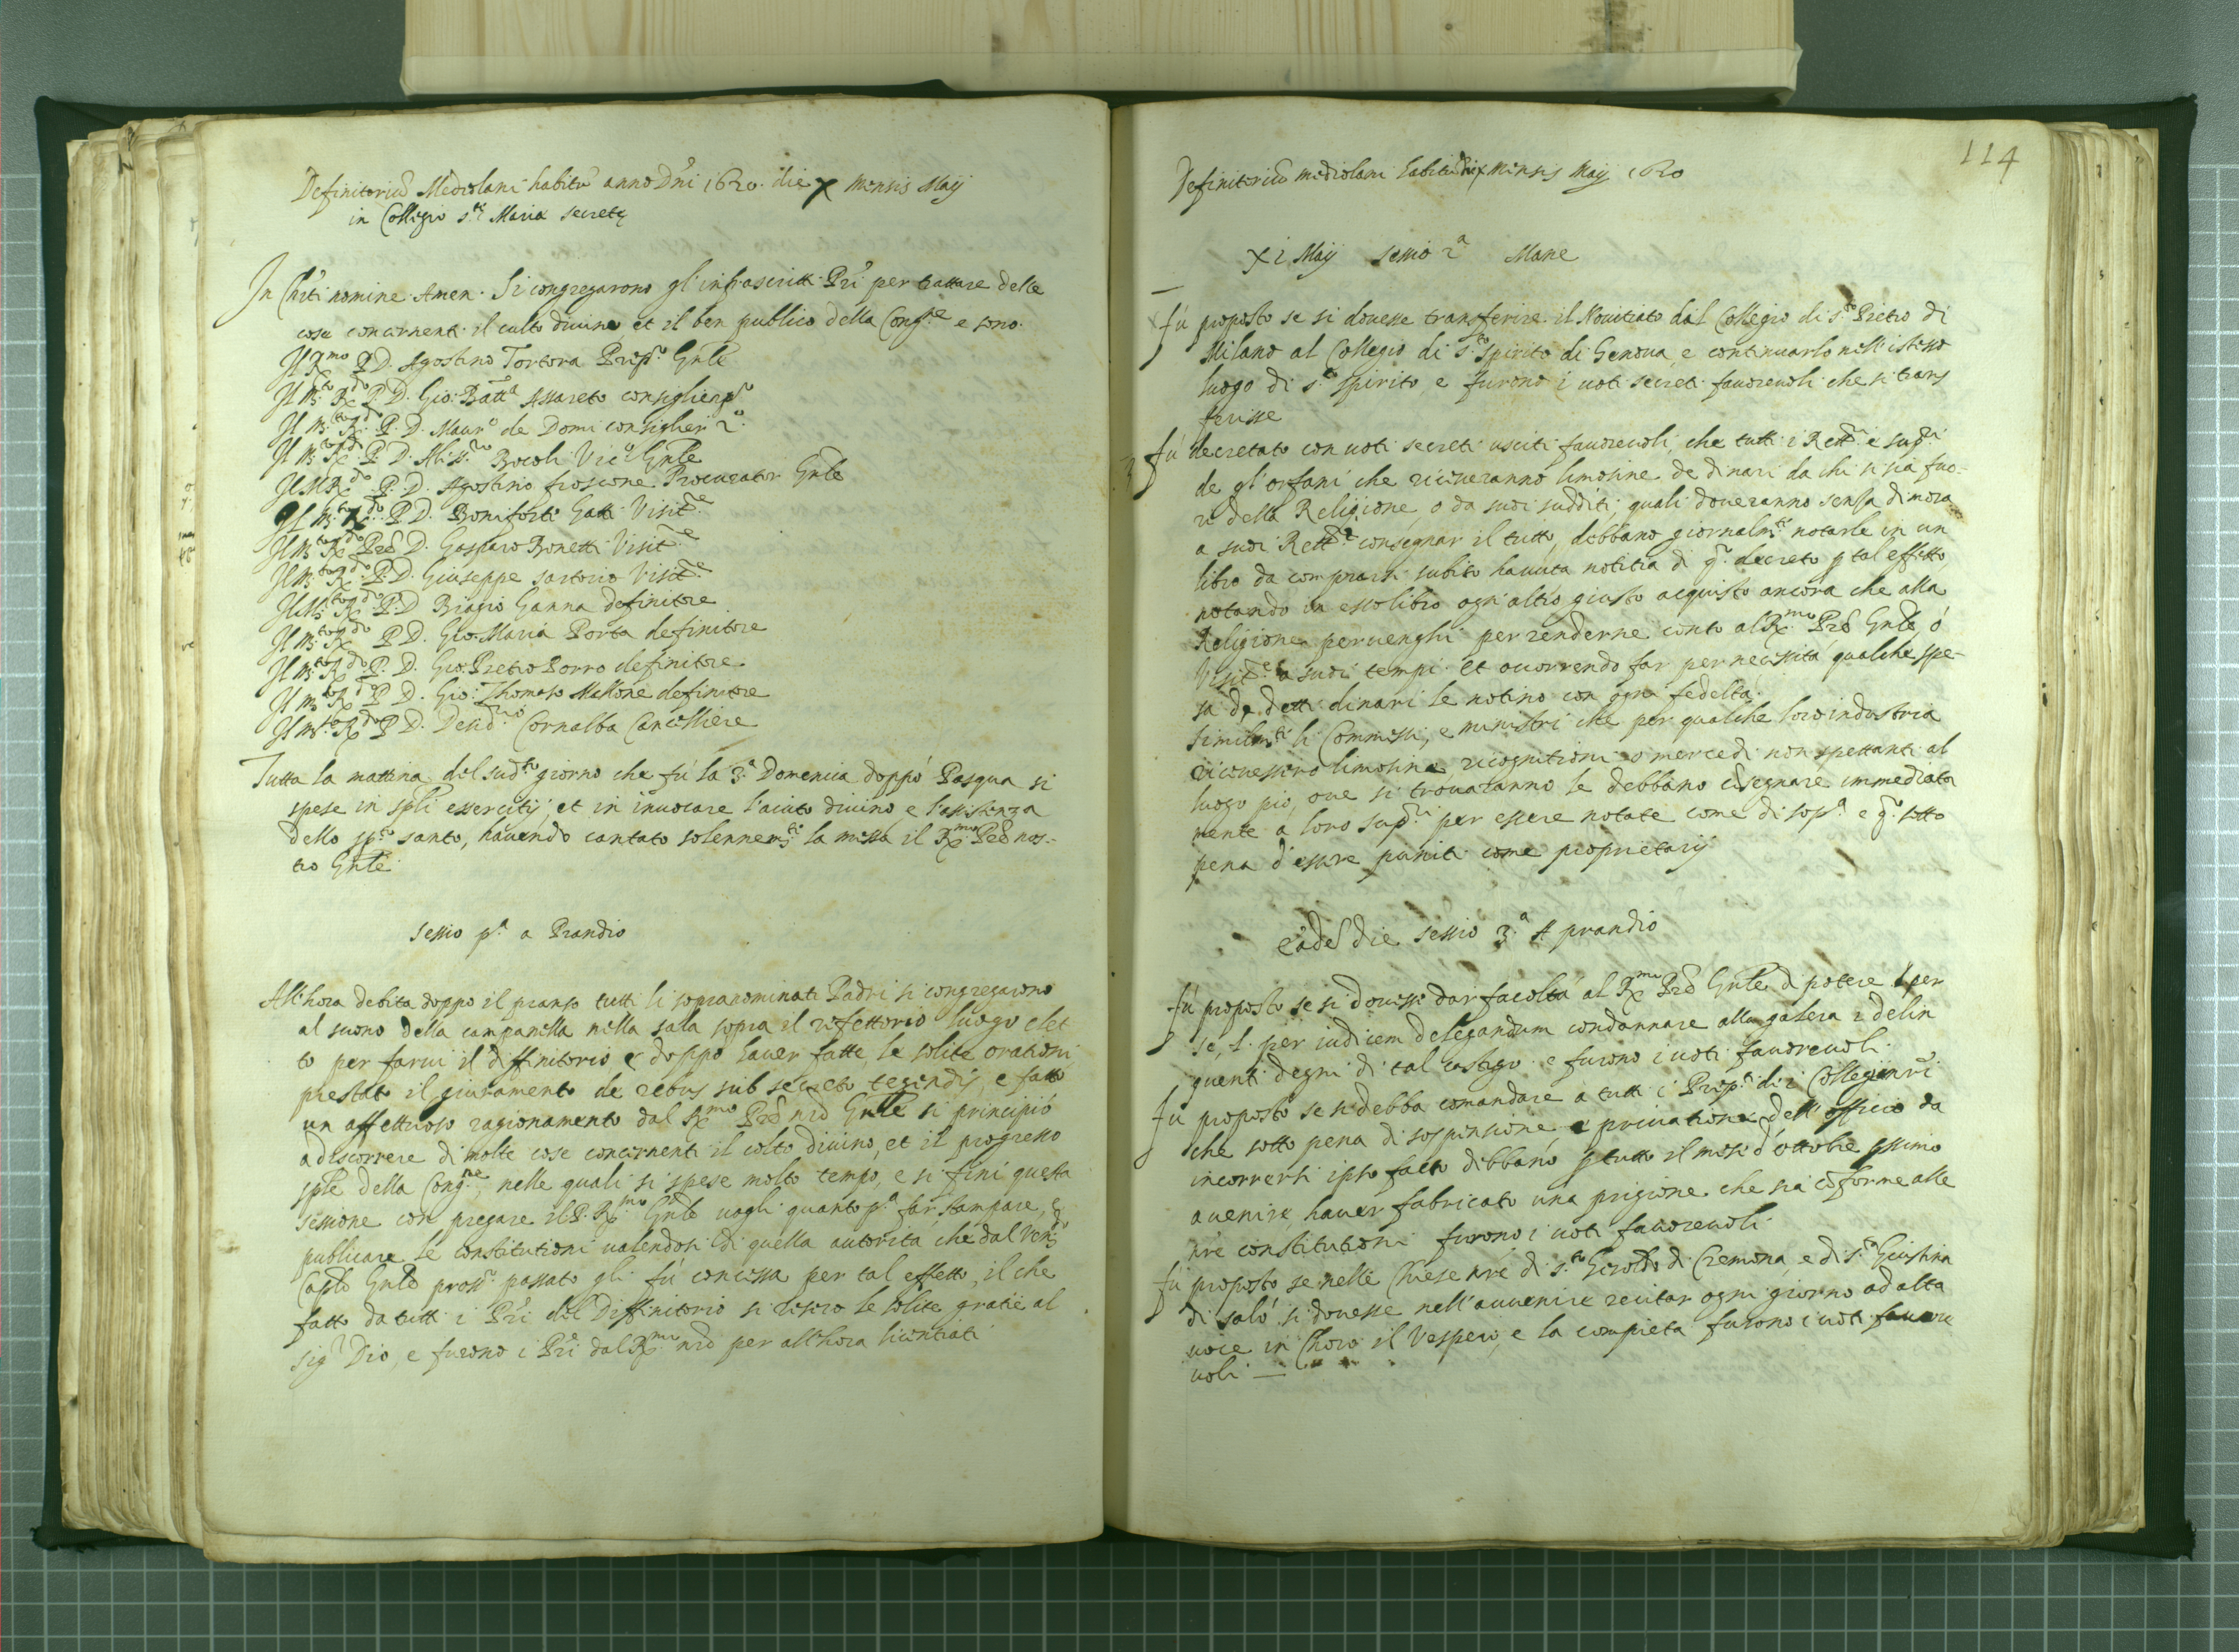 Definitoriũ Mediolani habitũ anno Dñi 1620. die X Mensis Maij
in Collegio s.te Mariæ secretę
In Chr̃i nomine Amen. Si congregarono gl'infrascritti Pr̃i per trattare delle
cose concernenti il culto divino et il ben publico della Cong.ne e sono.
Il R.mo P D. Agostino Tortora Prep.to Gñle
Il M.to R.do P. D. Gio: Batt.a Assareto consigliero p.o
Il M.to R.do P. D. Maur.o de Domi consiglier 2.o
Il M.to R.do P. D. Aless.ro Bocoli Vic.o Gñle
Il M R.do P. D. Agostino froscione Procurator Gñle
Il M.to R.do P. D. Boniforte Gatti Visit.re
Il M.to R.do Prẽ D. Gasparo Bonetti Visit.re
Il M.to R.do P. D. Giuseppe sartorio Visit.re
Il M.to R.do P. D Biagio Ganna definitore
Il M.to R.do P D. Gio. Maria Porta definitore
Il M.to R.do P. D. Gio: Pietro Porro definitore
Il M.to R.do P D. Gio: Thomaso Mallone definitore
Il M.to R.do P D. Desid.rio Cornalba Cancelliere
Tutta la mattina del sud.to giorno che fù la 3.a Domenica doppò Pasqua si
spese in sp̃li essercitij, et in invocare l'aiuto divino, e l'assistenza
dello sp.to santo, havendo cantato solennem.te la messa il R.mo Prẽ nos-
tro Gñle
Sessio p.a a Prandio
All'hora debita doppo il pranso tutti li sopranominati Padri si congregarono
al suono della campanella nella sala sopra il refettorio luogo elet
to per farvi il diffinitorio e doppo haver fatte le solite orationi
prestato il giuramento de rebus sub secreto tegendis, e fatto
un affettuoso ragionamento dal R.mo Prẽ nr̃o Gñle si principiò
a discorrere di molte cose concernenti il colto divino, et il progresso
sp̃le della Cong.ne, nelle quali si spese molto tempo, e si finì questa
sessione con pregare il P. R.mo Gñle vogli quanto p.a far stampare, e
publicare le constitutioni valendosi di quella autorità che dal Ven.
Cap̃lo Gñle pross.o passato gli fù concessa per tal effetto, il che
fatto da tutti i Pr̃i del Diffinitorio si resero le solite gratie al
Sig.r Dio, e furono i Pr̃i dal R.mo nr̃o per all'hora licentiati
114
Definitoriũ mediolani habitũ die x Mensis Maij 1620
XI Maij sessio 2.a Mane
Fù proposto se si dovesse transferire il Novitiato dal Collegio di s.to Pietro di
Milano al Collegio di s.to spirito di Genova, e continuarlo nell'istesso
luogo di s.to spirito, e furono i voti secreti favorevoli che si trans
ferisse
Fù decretato con voti secreti usciti favorevoli, che tutti i Rett.ri e sup.ri
de gl'orfani che riceveranno limosine de dinari da chi si sia fuo-
ri della Religione, o da suoi sudditi; quali doveranno senza dimora
a suoi Rett.ri consegnar il tutto, debbano giornalm.te notarle in un
libro da comprarsi subito havuta notitia di q.o decreto p tal effetto
notando in esso libro ogn'altro giusto acquisto ancora che alla
Religione pervenghi per renderne conto al R.mo Prẽ Gñle, ò
Visit.re a suoi tempi. et occorrendo far per necessità qualche spe-
sa de detti dinari le notino con ogni fedeltà.
Similm.te li Commessi, e ministri che per qualche loro industria
ricevessero limosine, ricognitioni o mercedi non spettanti al
luogo pio, ove si trovaranno le debbano cõsegnare immediata
mente a loro sup.ri per essere notate come di sop.a e q.o sotto
pena d'essere puniti come proprietarij
eãdẽ die sessio 3.a A prandio
Fù proposto se si dovesse dar facoltà al R.mo Prẽ Gñle di potere per
se, l. per iudicem delegandum condannare alla galera i delin
quenti degni di tal castigo e furono i voti favorevoli.
Fù proposto se si debba comandare a tutti i Prep.ti di i Collegij nr̃i
che sotto pena di sospensione, e privatione dell'officio da
incorrersi ipso facto debbano p tutto il mese d'ottobre pssimo
avenire, haver fabricato una prigione che sia cõforme alle
nr̃e constitutioni furono i voti favorevoli.
Fù proposto se nelle Chiese nr̃e di s.to Geroldo di Cremona, e di s.ta Giustina
di salò si dovesse nell'avvenire recitar ogni giorno ad alta
voce in Choro il Vespero, e la compieta furono i voti favore
voli —